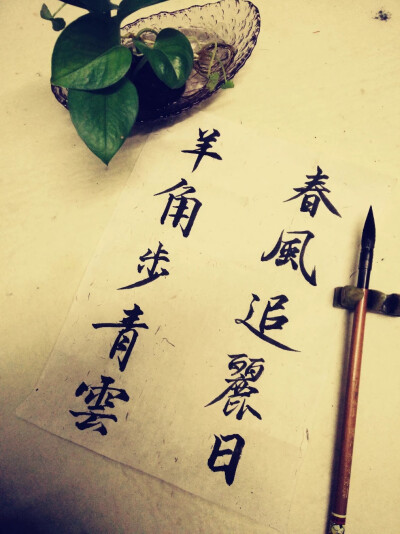 春風追麗日
羊角步青雲